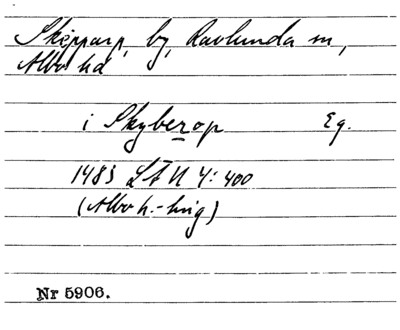 Skepparp, by, Ravlunda sn,
Albo hd
i Skyberop Eg.
1483 LÄU 4: 400
(Albo h.-ting)
Nr 5906.